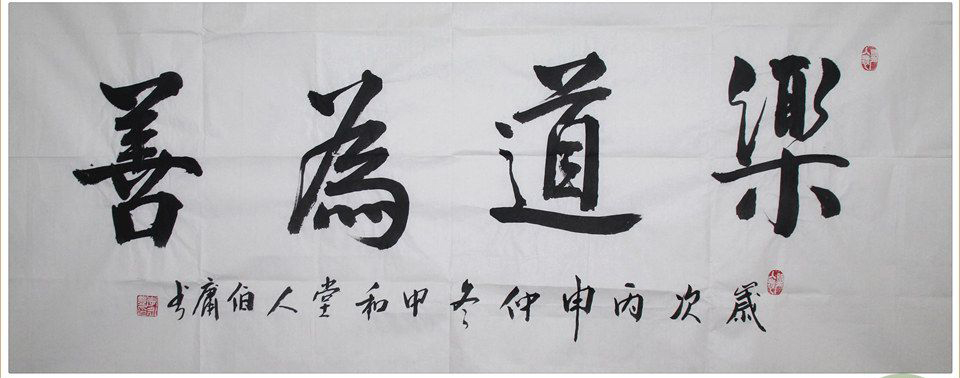 樂道為善
歲次丙申仲冬中和堂人伯庸书